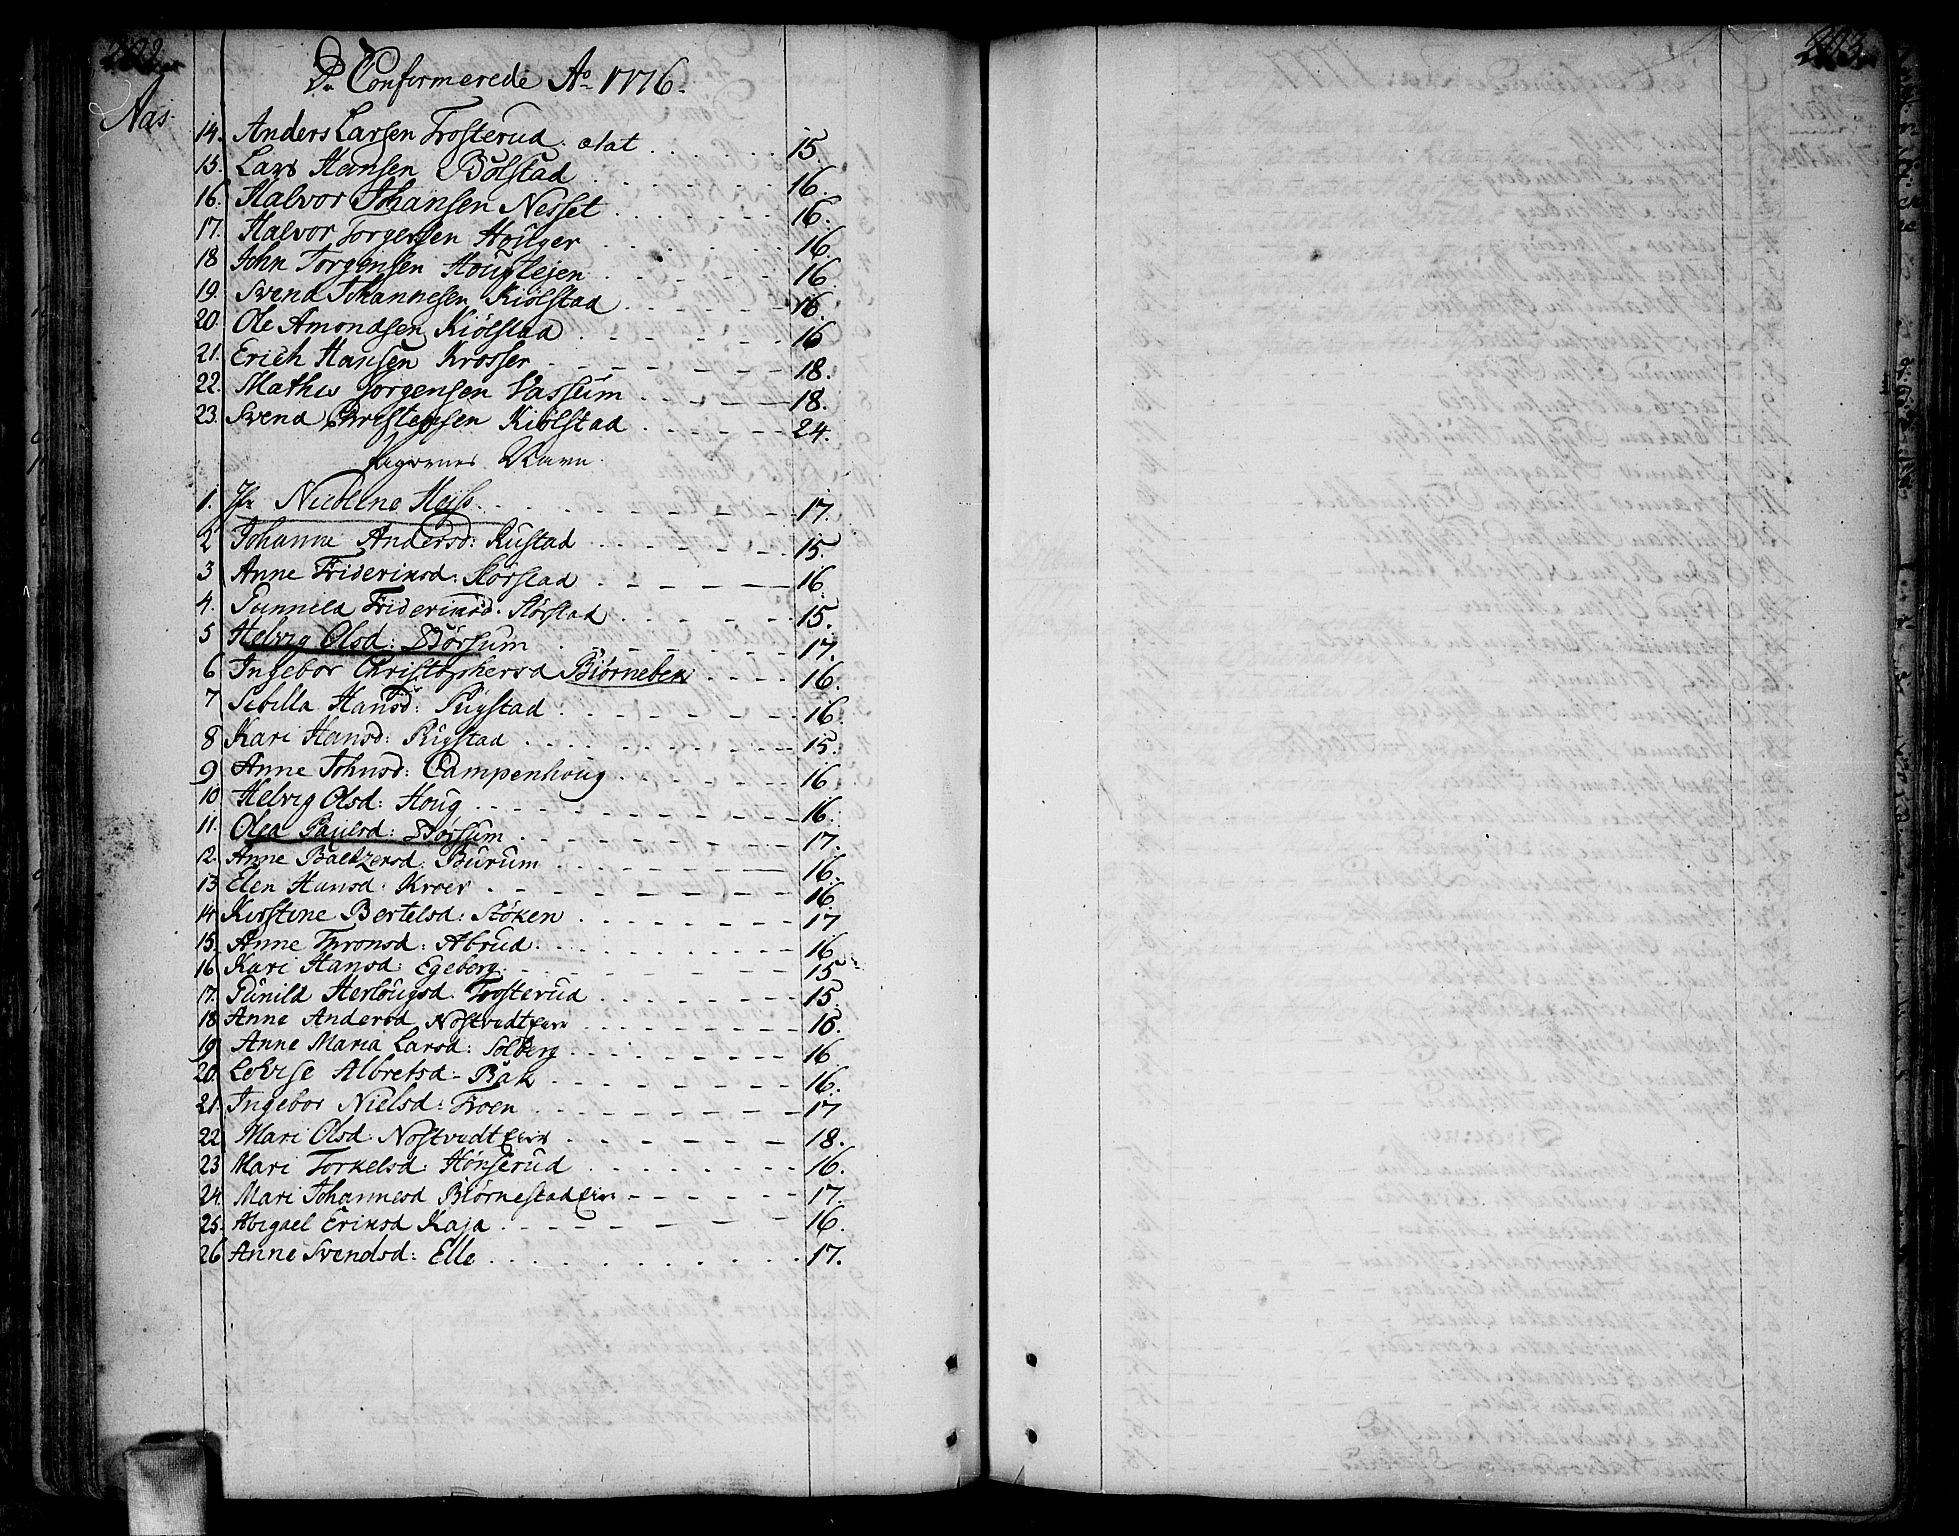 202.
De Confirmerede Ao 1776.
Aas.
14. Anders Larsen Trosterud ætat 15.
15. Lars Hansen Bølstad 16.
16. Halvor Johansen Nesset 16.
17. Halvor Torgersen Houger 16
18 John Torgensen Hougteien 16
19. Svend Johannesen Kiølstad 16.
20. Ole Amondsen Kiølstad 16
21. Erich Hansen Krosser 18.
22. Mathis Jorgensen Vassum 18.
23. Svend Christensen Kiølstad 24.
Pigernes Navn
1. Jfr Nicoline Heiss 17.
2 Johanne Andersd: Rustad 15.
3 Anne Friderichsd: Korstad 16.
4. Gunnild Friderichsd: Korstad 15.
5 Helvig Olsd: Dørsum 17.
6 Ingebor Christophersd Biørnebek 16.
7 Sibilla Hansd: Rugstad 16.
8 Kari Hansd: Rugstad 15.
9 Anne Johnsd: Campenhoug 16
10 Helvig Olsd: Houg 16.
11. Olea Paulsd: Dørsum 17.
12. Anne Baltzersd: Burum 16.
13 Elen Hansd: Kroer 16.
14 Kirstine Bertelsd: Støken 17
15. Anne Thronsd: Abrud 16
16 Kari Hansd: Egeberg 15
17. Gunild Herlougsd: Trosterud 15.
18 Anne Andersd Nostvedt Eier 16.
19. Anne Maria Larsd: Solberg 16
20. Lovise Albretsd Bak 16.
21. Ingebor Nielsd: Froen 17
22 Mari Olsd: Nostvedt Eier 18.
23 Mari Torkelsd: Hønserud 16.
24. Mari Johannesd Biørnestad Eier 17.
25. Abigael Erichsd Kaja 16.
26 Anne Svendsd: Elle 17.
203.